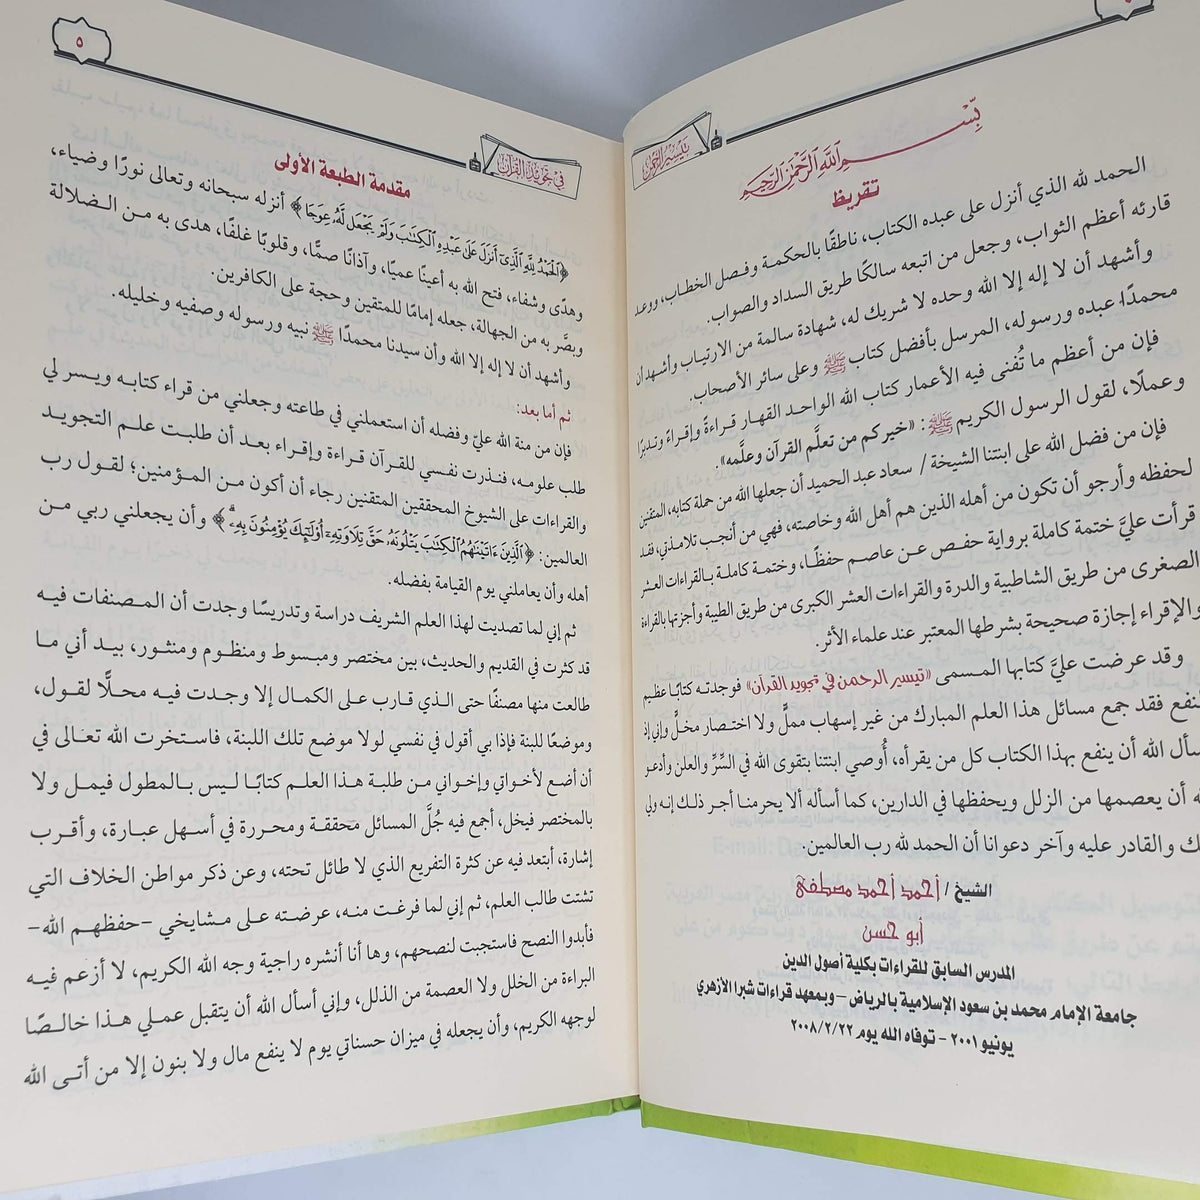 تيسير الرحمن
بِسْمِ اللَّهِ الرَّحْمَٰنِ الرَّحِيمِ
تقريظ
الحمد لله الذي أنزل على عبده الكتاب، ناطقًا بالحكمة وفصل الخطاب، ووعد
قارئه أعظم الثواب، وجعل من اتبعه سالكًا طريق السداد والصواب.
وأشهد أن لا إله إلا الله وحده لا شريك له، شهادة سالمة من الارتياب وأشهد أن
محمدًا عبده ورسوله، المرسل بأفضل كتاب ﷺ وعلى سائر الأصحاب.
فإن من أعظم ما تُفنى فيه الأعمار كتاب الله الواحد القهار قراءةً وإقراءً وتدبرًا
وعملًا، لقول الرسول الكريم ﷺ: «خيركم من تعلَّم القرآن وعلَّمه».
فإن من فضل الله على ابنتنا الشيخة/ سعاد عبد الحميد أن جعلها الله من حملة كتابه، المتقنين
لحفظه وأرجو أن تكون من أهله الذين هم أهل الله وخاصته، فهي من أنجب تلامذتي، فقد
قرأت عليَّ ختمة كاملة برواية حفص عن عاصم حفظًا، وختمة كاملة بالقراءات العشر
الصغرى من طريق الشاطبية والدرة والقراءات العشر الكبرى من طريق الطيبة وأجزتها بالقراءة
والإقراء إجازة صحيحة بشرطها المعتبر عند علماء الأثر.
وقد عرضت عليَّ كتابها المسمى «تيسير الرحمن في تجويد القرآن» فوجدته كتابًا عظيم
النفع فقد جمع مسائل هذا العلم المبارك من غير إسهاب مملٍّ ولا اختصار مخلٍّ وإني إذ
أسأل الله أن ينفع بهذا الكتاب كل من يقرأه، أُوصي ابنتنا بتقوى الله في السِّرِّ والعلن وأدعو
أن يعصمها من الزلل ويحفظها في الدارين، كما أسأله ألا يحرمنا أجر ذلك إنه ولي
والقادر عليه وآخر دعوانا أن الحمد لله رب العالمين.
الشيخ/ أحمد أحمد مصطفى
أبو حسن
المدرس السابق للقراءات بكلية أصول الدين
جامعة الإمام محمد بن سعود الإسلامية بالرياض - وبمعهد قراءات شبرا الأزهري
يونيو ٢٠٠١ - توفاه الله يوم ٢٠٠٨/٢/٢٢
في تجويد القرآن
٥
مقدمة الطبعة الأولى
﴿الْحَمْدُ لِلَّهِ الَّذِي أَنزَلَ عَلَىٰ عَبْدِهِ الْكِتَابَ وَلَمْ يَجْعَل لَّهُ عِوَجَا﴾ أنزله سبحانه وتعالى نورًا وضياء،
وهدًى وشفاء، فتح الله به أعينًا عميًا، وآذانًا صمًّا، وقلوبًا غلفًا، هدى به من الضلالة
وبصَّر به من الجهالة، جعله إمامًا للمتقين وحجة على الكافرين.
وأشهد أن لا إله إلا الله وأن سيدنا محمدًا ﷺ نبيه ورسوله وصفيه وخليله.
ثم أما بعد:
فإن من منة الله عليَّ وفضله أن استعملني في طاعته وجعلني من قراء كتابه ويسر لي
طلب علومه، فنذرت نفسي للقرآن قراءة وإقراء بعد أن طلبت علم التجويد
والقراءات على الشيوخ المحققين المتقنين رجاء أن أكون من المؤمنين؛ لقول رب
العالمين: ﴿الَّذِينَ ءَاتَيْنَاهُمُ الْكِتَابَ يَتْلُونَهُ حَقَّ تِلَاوَتِهِ أُولَٰئِكَ يُؤْمِنُونَ بِهِ﴾ وأن يجعلني ربي من
أهله وأن يعاملني يوم القيامة بفضله.
ثم إني لما تصديت لهذا العلم الشريف دراسة وتدريسًا وجدت أن المصنفات فيه
قد كثرت في القديم والحديث، بين مختصر ومبسوط ومنظوم ومنثور، بيد أني ما
طالعت منها مصنفًا حتى الذي قارب على الكمال إلا وجدت فيه محلًّا لقول،
وموضعًا للبنة فإذا بي أقول في نفسي لولا موضع تلك اللبنة، فاستخرت الله تعالى في
أن أضع لأخواتي وإخواني من طلبة هذا العلم كتابًا ليس بالمطول فيمل ولا
بالمختصر فيخل، أجمع فيه جُلَّ المسائل محققة ومحررة في أسهل عبارة، وأقرب
إشارة، أبتعد فيه عن كثرة التفريع الذي لا طائل تحته، وعن ذكر مواطن الخلاف التي
تشتت طالب العلم، ثم إني لما فرغت منه، عرضته على مشايخي -حفظهم الله-
فأبدوا النصح فاستجبت لنصحهم، وها أنا أنشره راجية وجه الله الكريم، لا أزعم فيه
البراءة من الخلل ولا العصمة من الذلل، وإني أسأل الله أن يتقبل عملي هذا خالصًا
لوجهه الكريم، وأن يجعله في ميزان حسناتي يوم لا ينفع مال ولا بنون إلا من أتى الله